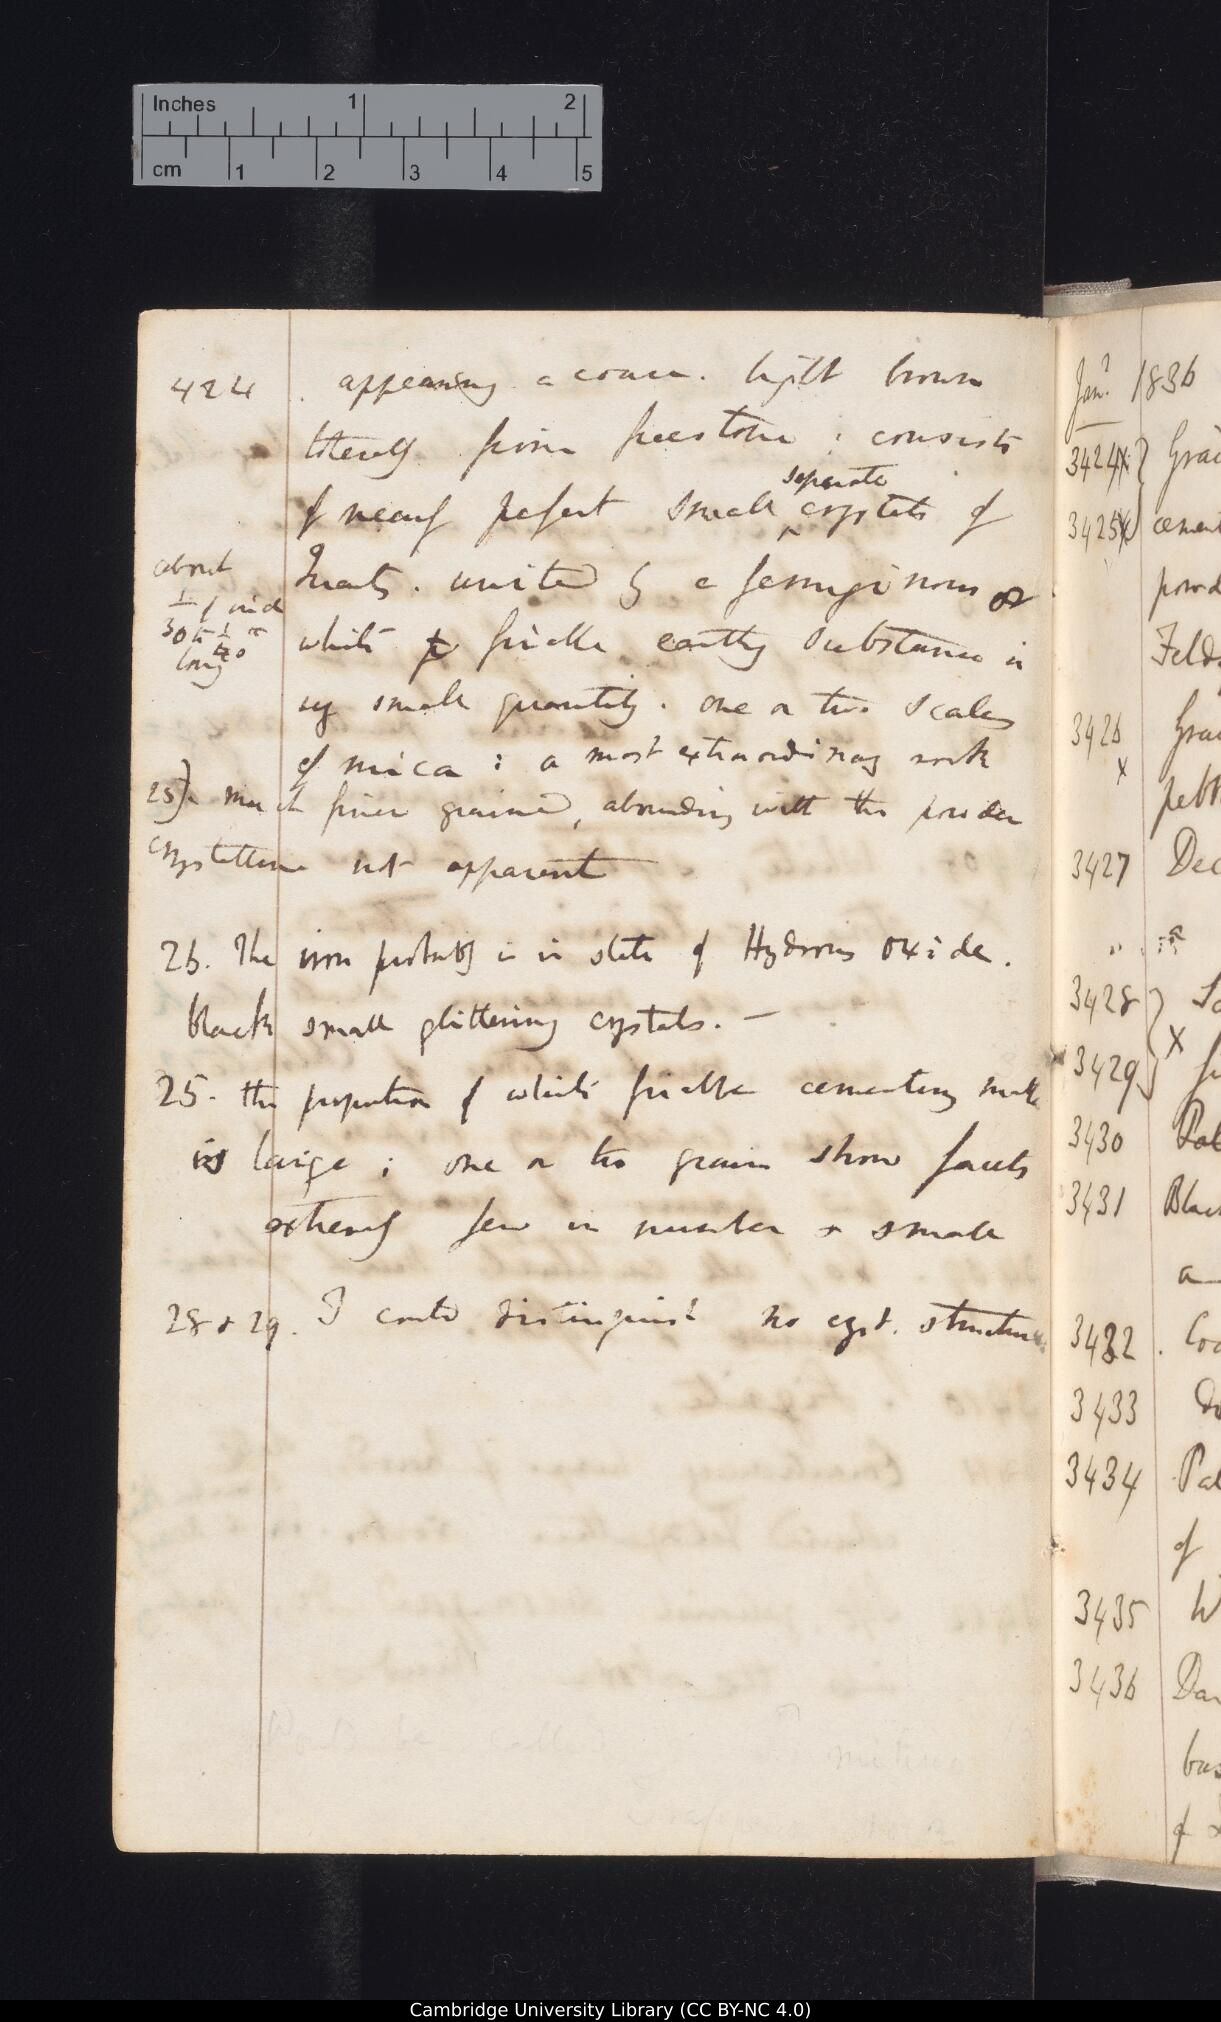 Inches 1 2
cm 1 2 3 4 5
424 . appearing a coarse. light brown
literally from freestone : consists
separate
of nearly perfect small crystals of
Quartz . united by a ferruginous or
about
1/30 of inch
to 1/20
long
white friable earthy substance in
very small quantity . one or two scales
of mica : a most extraordinary rock
25) much finer grained, abounding with the powder
crystalline not apparent
26. The iron probably is in state of Hydrous oxide.
black small glittering crystals. —
25. the proportion of white friable cementing
is large ; one or two grains show facets
extremely few in number & small
28 & 29. I could distinguish no cryst. structure
Jan? 1836
3424 x }
3425 x } cement
3426
x
3427 Dec
3428 }
x
3429 }
3430
3431 Blac
a
3432 .
3433
3434
of
3435
3436
bas
of
Cambridge University Library (CC BY-NC 4.0)